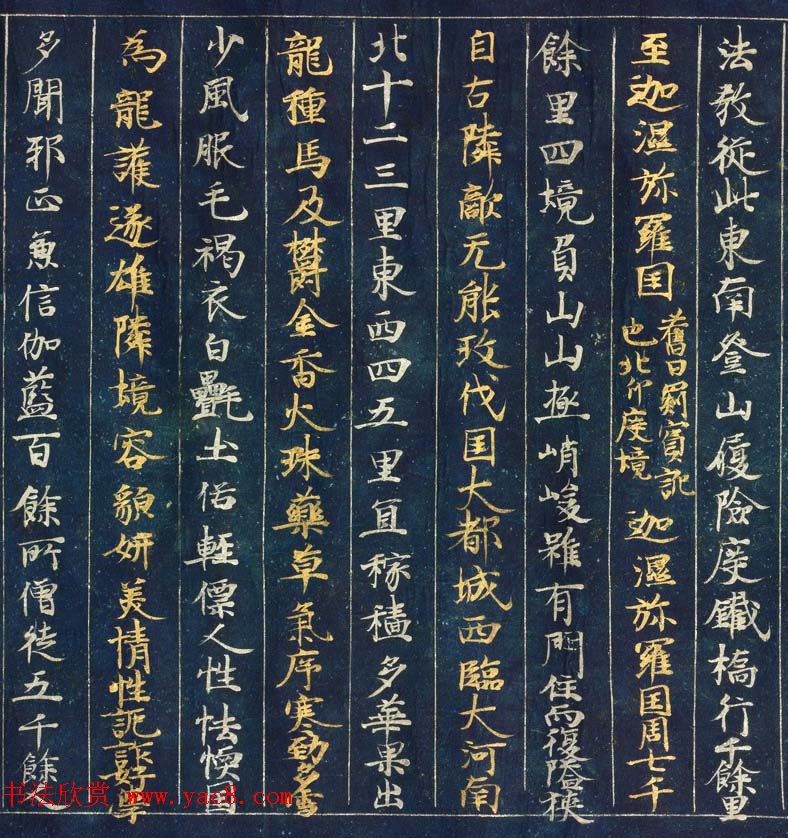 法教從此東南登山履險度鐵橋行千餘里
至迦濕弥羅国舊曰罽賓訛也北印度境迦濕弥羅国周七千
餘里四境負山山極峭峻雖有門住而復隘狹
自古隣敵无能攻伐国大都城西臨大河南
北十二三里東西四五里宜稼穡多華果出
龍種馬及欝金香火珠藥草氣序寒勁多雪
少風服毛褐衣白㲲土俗輕僄人性怯懦国
為龍護遂雄隣境容貌妍美情性詭詐好學
多聞邪正兼信伽藍百餘所僧徒五千餘人
书法欣赏 www.yac8.com